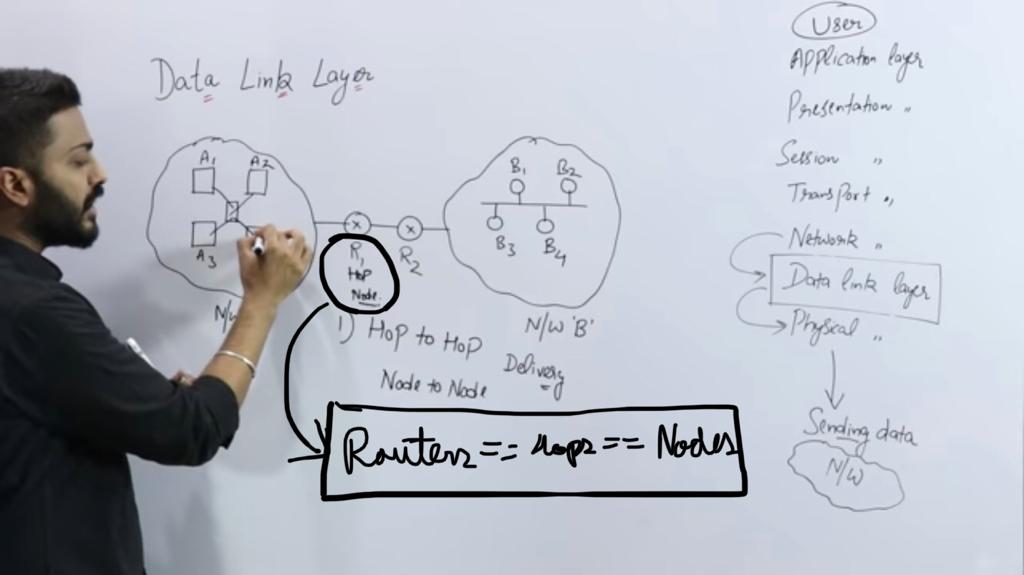 Data Link Layer
A1 A2
A3
N/W
R1
HOP
Node
R2
B1 B2
B3 B4
N/W 'B'
1) HOP to HOP
Node to Node
Delivery
Routers == Hops == Nodes
User
Application layer
Presentation "
Session "
Transport "
Network "
Data link layer
Physical "
Sending data
N/W